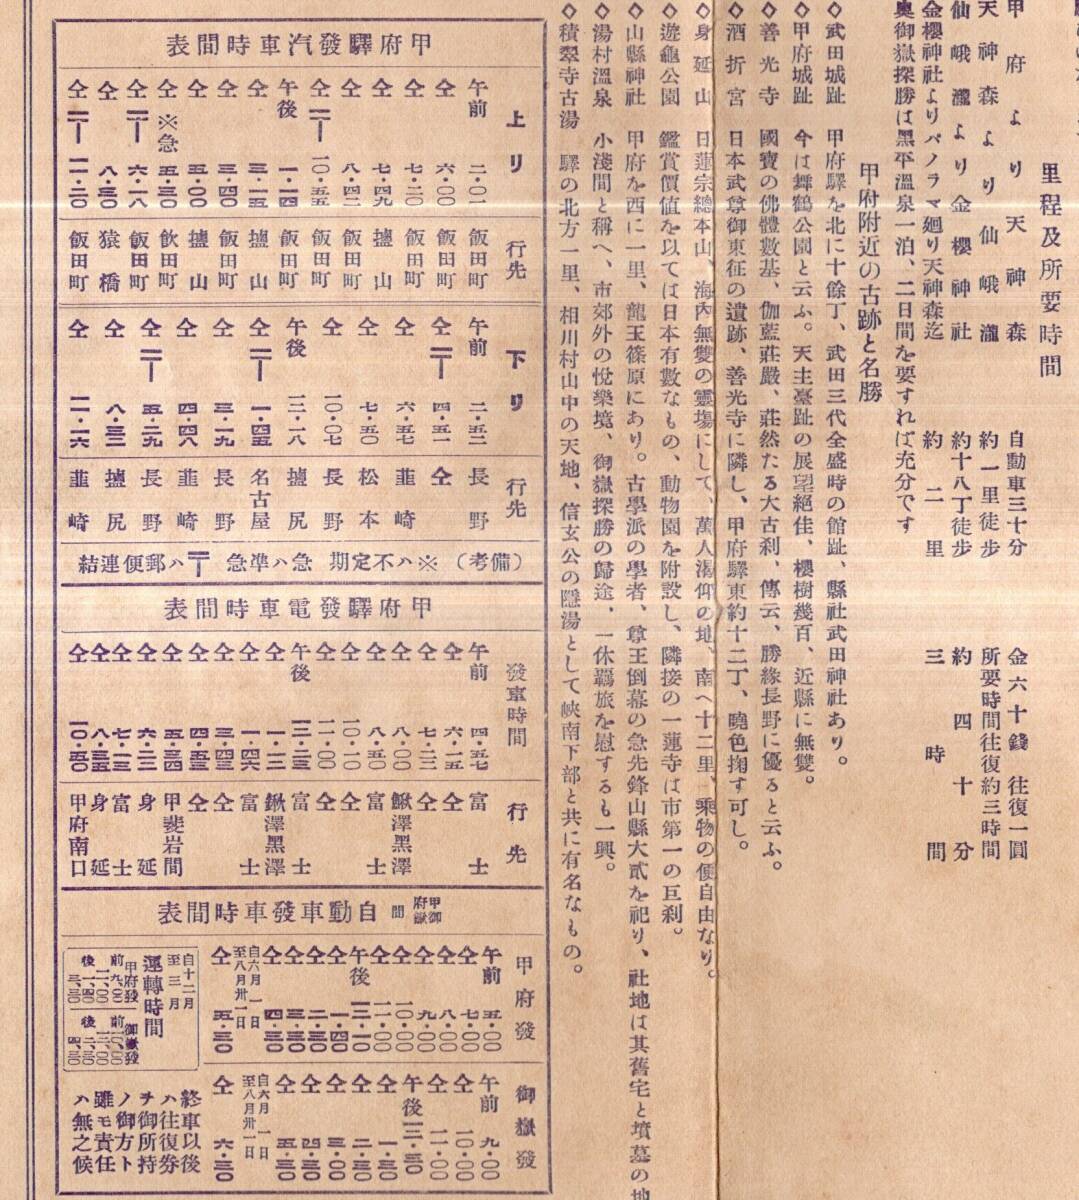 里程及所要時間
甲府より天神森 自動車三十分 金六十錢 往復一圓
天神森より仙峨瀧 約一里徒步 所要時間往復約三時間
仙峨瀧より金櫻神社 約十八丁徒步 約四十分
金櫻神社よりパノラマ廻り天神森迄 約二里 三時間
奥御嶽探勝は黑平溫泉一泊、二日間を要すれば充分です
甲府附近の古跡と名勝
◇武田城趾 甲府驛を北に十餘丁、武田三代全盛時の館趾、縣社武田神社あり。
◇甲府城趾 今は舞鶴公園と云ふ。天主臺趾の展望絕佳、櫻樹幾百、近縣に無雙。
◇善光寺 國寶の佛體數基、伽藍莊嚴、莊然たる大古刹、傳云、勝緣長野に優ると云ふ。
◇酒折宮 日本武尊御東征の遺跡、善光寺に隣し、甲府驛東約十二丁、曉色掬す可し。
◇身延山 日蓮宗總本山、海內無雙の靈場にして、萬人渴仰の地、南へ十二里、乘物の便自由なり。
◇遊龜公園 鑑賞價値を以ては日本有數なもの、動物園を附設し、隣接の一蓮寺は市第一の巨刹。
◇山縣神社 甲府を西に一里、龍王篠原にあり。古學派の學者、尊王倒幕の急先鋒山縣大貳を祀り、社地は其舊宅と墳墓の地
◇湯村溫泉 小淺間と稱へ、市郊外の悅樂境、御嶽探勝の歸途、一休羇旅を慰するも一興。
◇積翠寺古湯 驛の北方一里、相川村山中の天地、信玄公の隱湯として峽南下部と共に有名なもの。
甲府驛發汽車時間表
上り 行先
午前 二・〇一 飯田町
仝 六・〇〇 飯田町
仝 七・二〇 飯田町
仝 七・四九 鹽山
仝 八・四二 飯田町
仝 〒 一〇・五五 飯田町
午後 一・一四 飯田町
仝 三・一五 鹽山
仝 三・四〇 飯田町
仝 五・〇〇 鹽山
仝 ※急 五・三〇 飯田町
仝 〒 六・一八 飯田町
仝 八・三〇 猿橋
仝 〒 一一・二〇 飯田町
下り 行先
午前 二・五二 長野
仝 〒 四・五一 仝
仝 六・五七 韮崎
仝 七・五〇 松本
仝 一〇・〇七 長野
午後 一二・一八 鹽尻
仝 〒 一・四五 名古屋
仝 三・一九 長野
仝 四・四八 韮崎
仝 〒 五・二九 長野
仝 八・三二 鹽尻
仝 一一・一六 韮崎
(備考) ※ハ不定期 急ハ準急 〒ハ郵便連結
甲府驛發電車時間表
發車時間 行先
午前 四・五七 富士
仝 六・一五 仝
仝 七・二三 仝
仝 八・〇〇 鰍澤黑澤
仝 八・五〇 富士
仝 一〇・一〇 仝
仝 一一・〇〇 仝
午後 一二・一三 富士
仝 一・一二 鰍澤黑澤
仝 一・四六 富士
仝 三・三〇 仝
仝 四・五三 仝
仝 五・三四 甲斐岩間
仝 六・二二 身延
仝 七・一三 富士
仝 八・三五 身延
仝 一〇・五〇 甲府南口
甲府御嶽間 自動車發車時間表
甲府發
午前 五・〇〇
仝 七・〇〇
仝 八・〇〇
仝 九・〇〇
仝 一〇・〇〇
仝 一一・〇〇
午後 一二・一〇
仝 一・四〇
仝 二・三〇
仝 三・三〇
仝 四・三〇
自六月一日
至八月卅一日
仝 五・三〇
御嶽發
午前 九・〇〇
仝 一〇・〇〇
仝 一一・〇〇
午後 一二・三〇
仝 一・三〇
仝 二・〇〇
仝 三・〇〇
仝 四・三〇
仝 五・三〇
自六月一日
至八月卅一日
仝 六・三〇
自十二月
至三月
運轉時間
甲府發
前 九・〇〇
一一・〇〇
後 一・四〇
三・三〇
御嶽發
前 一〇・〇〇
後 二・三〇
四・三〇
終車以後
ハ往復券
ヲ御所持
ノ御方ト
雖モ責任
ハ無之候